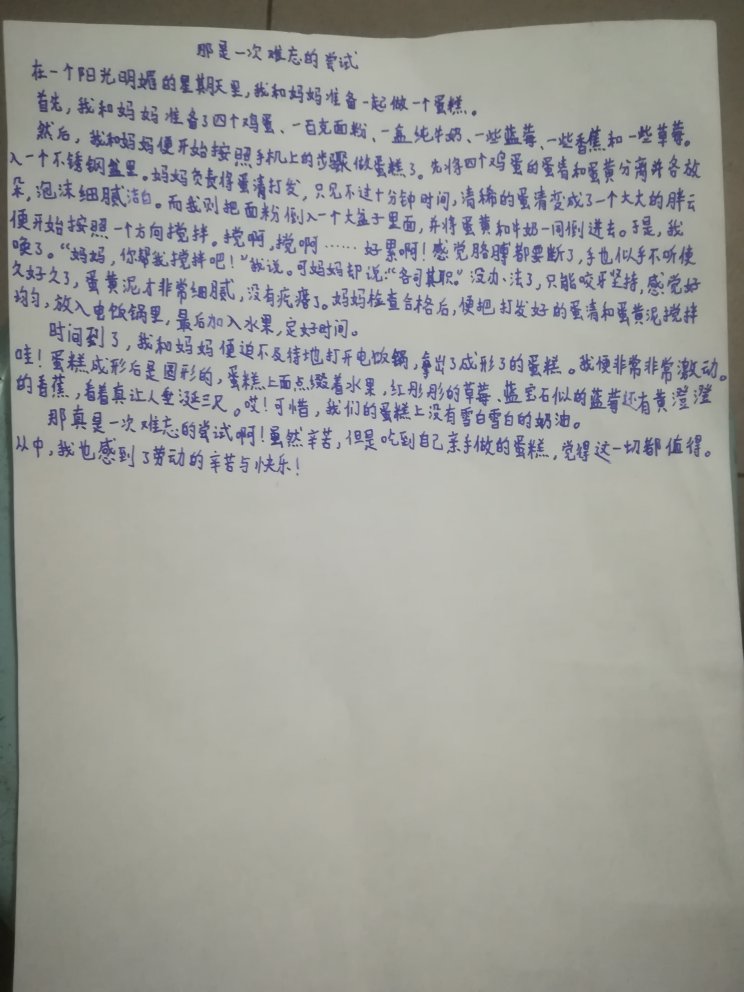 那是一次难忘的尝试
在一个阳光明媚的星期天里，我和妈妈准备一起做一个蛋糕。
首先，我和妈妈准备了四个鸡蛋、一百克面粉、一盒纯牛奶、一些蓝莓、一些香蕉和一些草莓。
然后，我和妈妈便开始按照手机上的步骤做蛋糕了。先将四个鸡蛋的蛋清和蛋黄分离并各放
入一个不锈钢盆里。妈妈负责将蛋清打发，只见不过十分钟时间，清稀的蛋清变成了一个大大的胖云
朵，泡沫细腻洁白。而我则把面粉倒入一个大盆子里面，并将蛋黄和牛奶一同倒进去。于是，我
便开始按照一个方向搅拌。搅啊，搅啊……好累啊！感觉胳膊都要断了，手也似乎不听使
唤了。“妈妈，你帮我搅拌吧！”我说。可妈妈却说：“各司其职。”没办法了，只能咬牙坚持，感觉好
久好久了，蛋黄泥才非常细腻，没有疙瘩了。妈妈检查合格后，便把打发好的蛋清和蛋黄泥搅拌
均匀，放入电饭锅里，最后加入水果，定好时间。
时间到了，我和妈妈便迫不及待地打开电饭锅，拿出了成形了的蛋糕。我便非常非常激动。
哇！蛋糕成形后是圆形的，蛋糕上面点缀着水果，红彤彤的草莓、蓝宝石似的蓝莓还有黄澄澄
的香蕉，看着真让人垂涎三尺。哎！可惜，我们的蛋糕上没有雪白雪白的奶油。
那真是一次难忘的尝试啊！虽然辛苦，但是吃到自己亲手做的蛋糕，觉得这一切都值得。
从中，我也感到了劳动的辛苦与快乐！